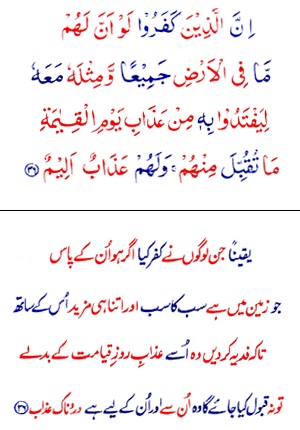 اِنَّ الَّذِيْنَ كَفَرُوْا لَوْ اَنَّ لَهُمْ
مَّا فِى الْاَرْضِ جَمِيْعًا وَّمِثْلَهٗ مَعَهٗ
لِيَفْتَدُوْا بِهٖ مِنْ عَذَابِ يَوْمِ الْقِيٰمَةِ
مَا تُقُبِّلَ مِنْهُمْ ۚ وَلَهُمْ عَذَابٌ اَلِيْمٌ ﴿۳۶﴾
یقیناً جن لوگوں نے کفر کیا اگر ہو اُن کے پاس
جو زمین میں ہے سب کا سب اور اتنا ہی مزید اُس کے ساتھ
تاکہ فدیہ کر دیں وہ اُسے عذابِ روزِ قیامت کے بدلے
تو نہ قبول کیا جائے گا وہ اُن سے اور اُن کے لیے ہے دردناک عذاب ﴿۳۶﴾